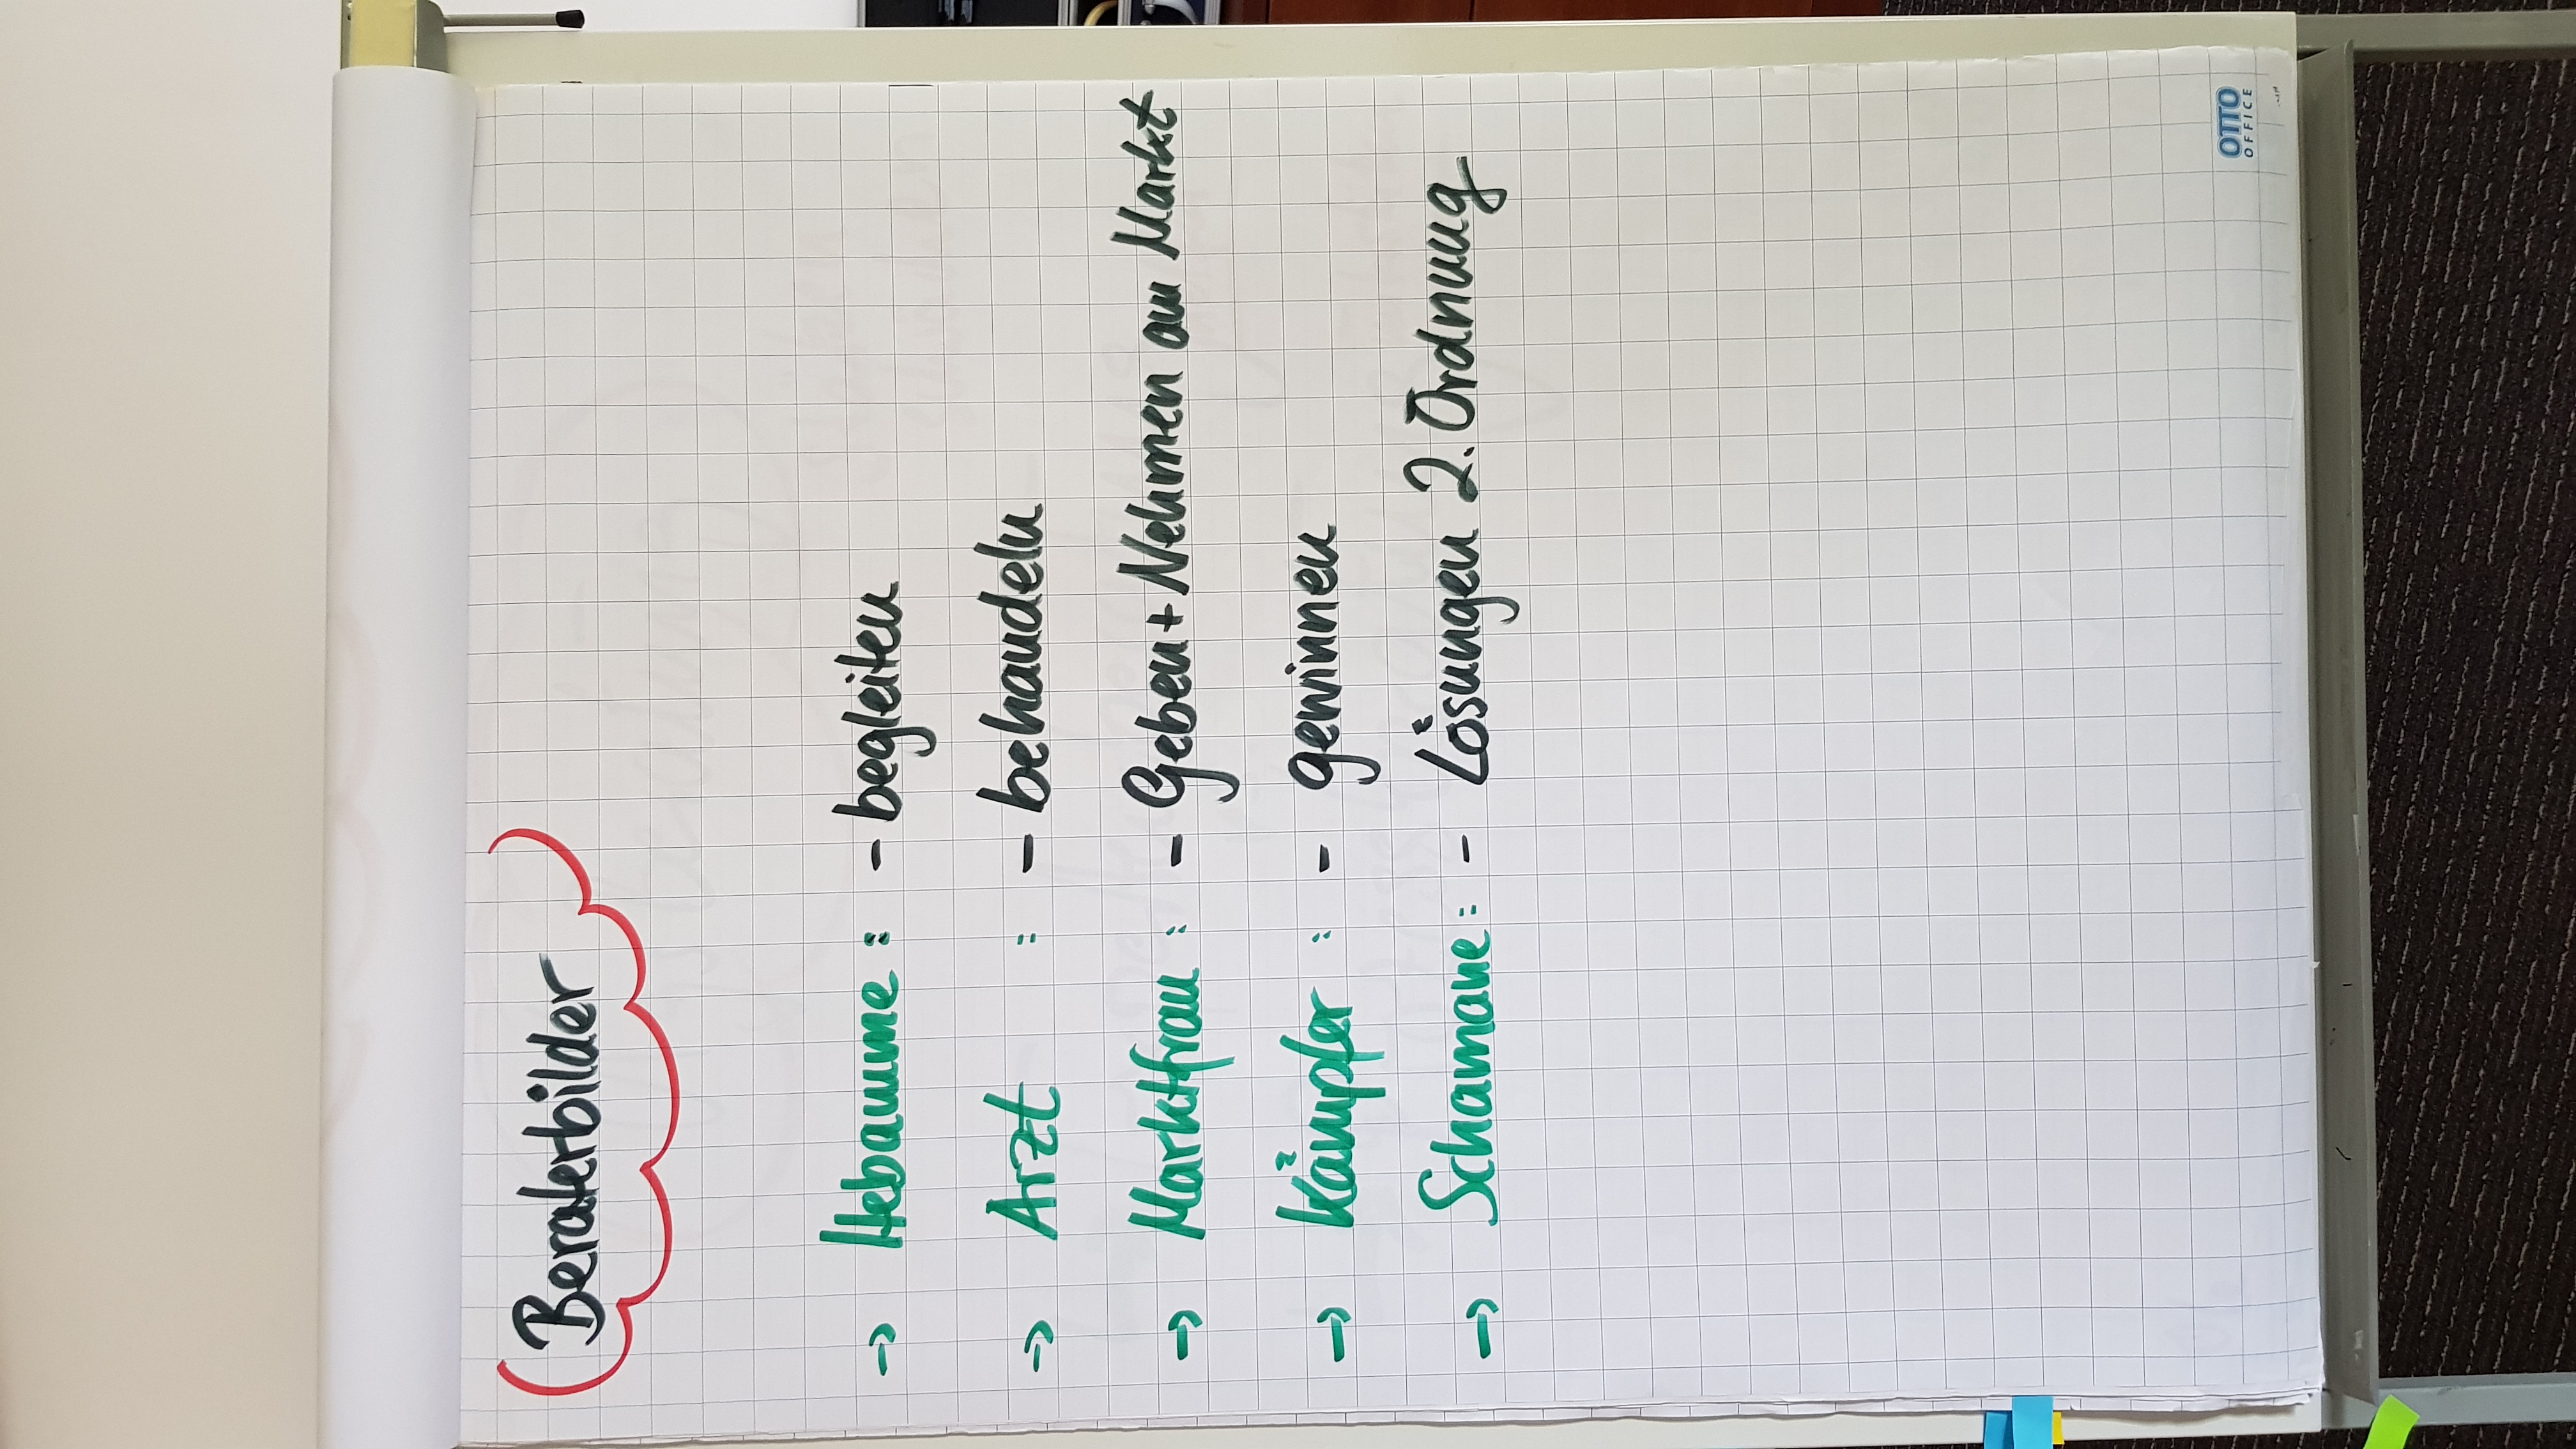 Beraterbilder
→ Hebamme : - begleiten
→ Arzt : - behandeln
→ Marktfrau : - Geben + Nehmen am Markt
→ Kämpfer : - gewinnen
→ Schamane : - Lösungen 2. Ordnung
OTTO
OFFICE